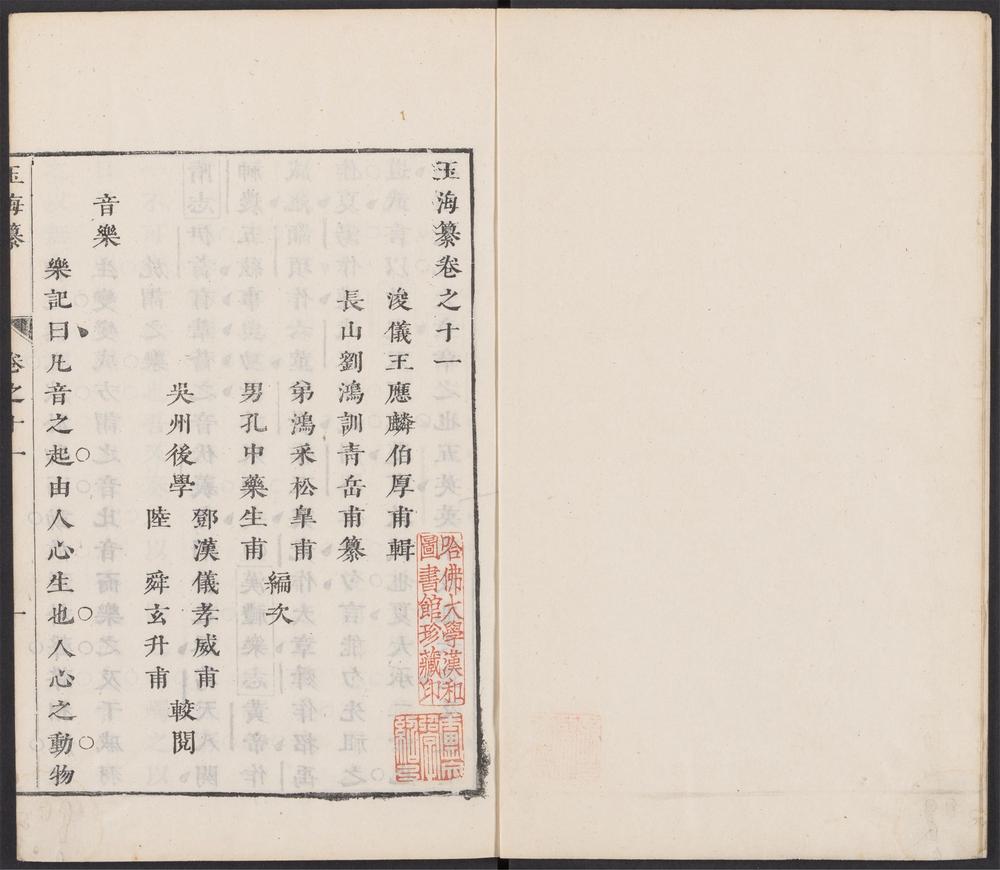 玉海纂卷之十一
浚儀王應麟伯厚甫輯
長山劉鴻訓青岳甫纂
弟鴻采松皐甫
男孔中藥生甫
編次
吳州後學
鄧漢儀孝威甫
陸舜玄升甫
較閱
音樂
樂記曰凡音之起由人心生也人心之動物
玉海纂
卷之十一
一
哈佛大學漢和
圖書館珍藏印